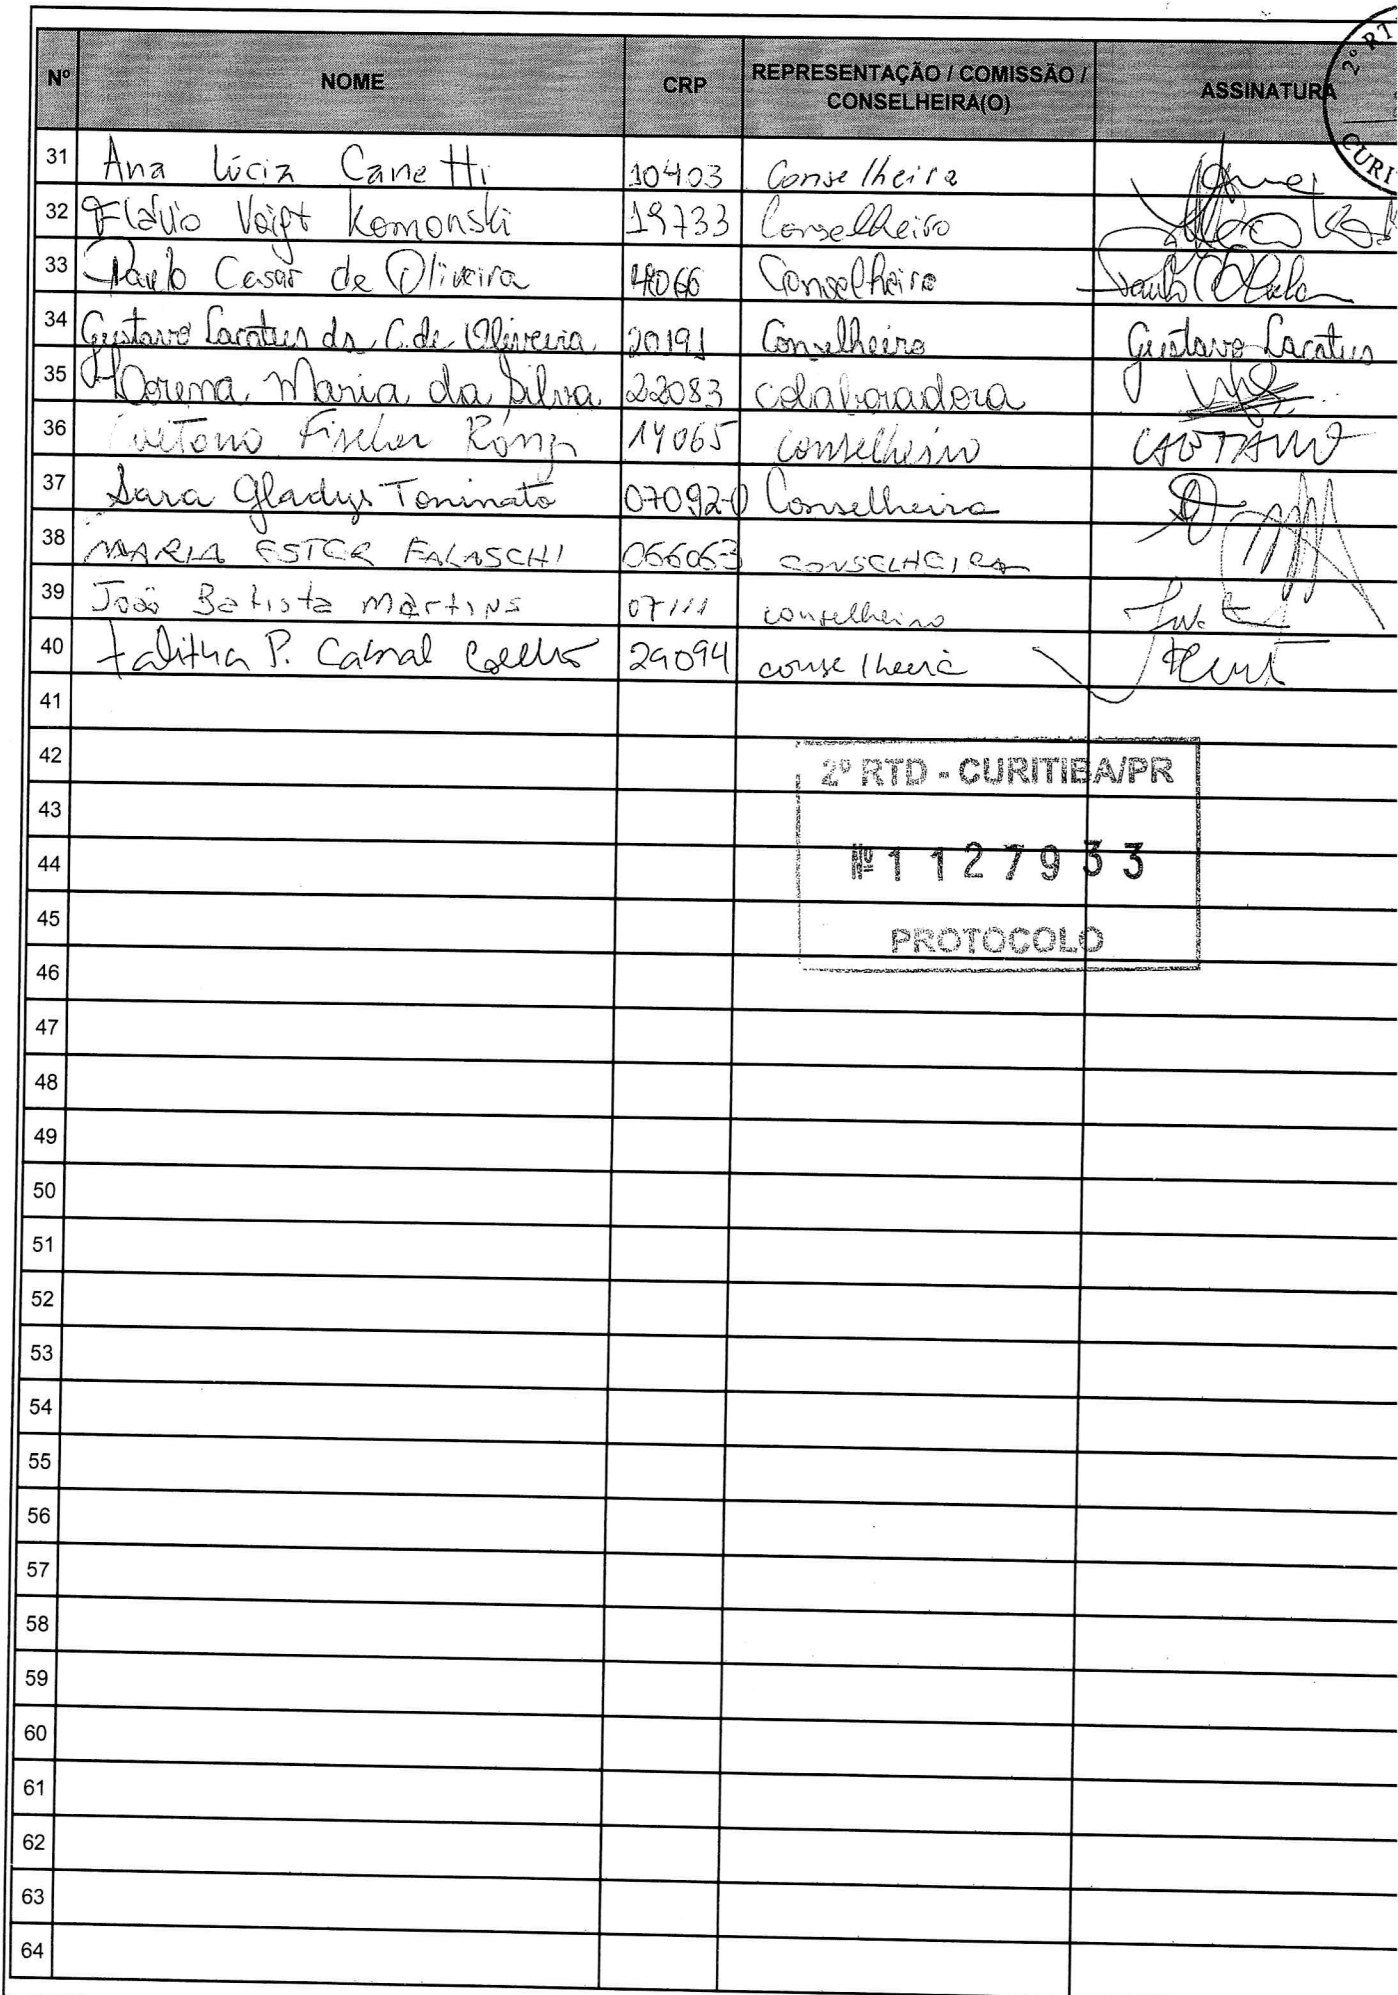 Nº NOME CRP REPRESENTAÇÃO / COMISSÃO / CONSELHEIRA(O) ASSINATURA
2º RT
CURI
31 Ana Lúcia Canetti 10403 Conselheira
32 Flávio Voigt Komonski 19733 Conselheiro
33 Paulo Cesar de Oliveira 4066 Conselheiro
34 Gustavo Lacatus da C. de Oliveira 20191 Conselheiro Gustavo Lacatus
35 Maria da Silva 22083 colaboradora
36 Fischer 14065 conselheiro CAETANO
37 Sara Gladys Toninato 07092-0 Conselheira
38 MARIA ESTER FALASCHI 06606-3 CONSELHEIRA
39 João Batista Martins 07111 conselheiro
40 Talitha P. Cabral Coelho 29094 conselheira
41
42
2º RTD - CURITIBA/PR
43
44
Nº 1127933
45
PROTOCOLO
46
47
48
49
50
51
52
53
54
55
56
57
58
59
60
61
62
63
64